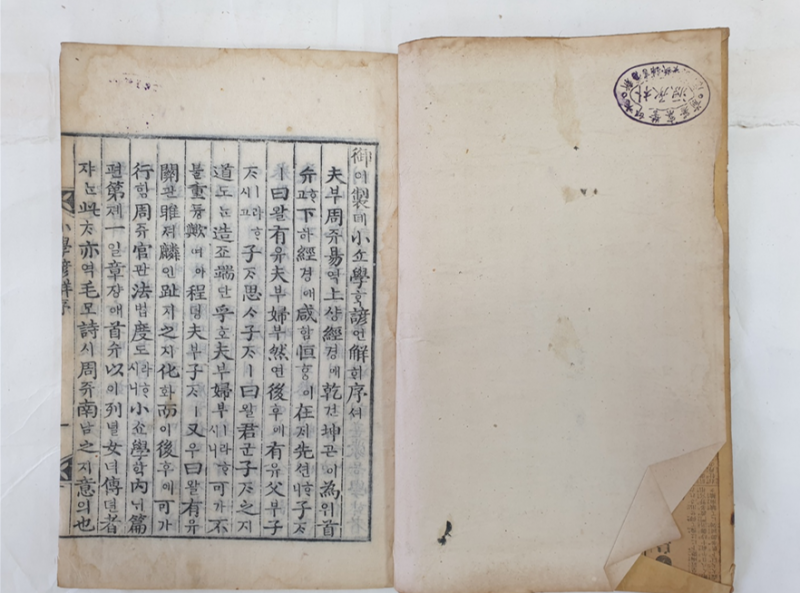 御어製졔小쇼學학諺언解ᄒᆡ序셔
夫부周쥬易역上샹經경애乾건坤곤이為위首
슈ᄒᆞ고下하經경애咸함恒ᄒᆞᆼ이在ᄌᆡ先션ᄒᆞ니子ᄌᆞ
ㅣ曰왈有유夫부婦부然연後후에有유父부子
ᄌᆞㅣ라ᄒᆞ시고子ᄌᆞ思ᄉᆞ子ᄌᆞㅣ曰왈君군子ᄌᆞ之지
道도ᄂᆞᆫ造조端단乎호夫부婦부ㅣ라ᄒᆞ시니可가不
블重듕歟여아程뎡夫부子ᄌᆞㅣ又우曰왈有유
關관雎져麟인趾지之지化화而이後후에可가
行ᄒᆡᆼ周쥬官관法법度도ㅣ라ᄒᆞ시니小쇼學학內ᄂᆡ篇
편第뎨一일章쟝애首슈以이列녈女녀傳뎐者
쟈ᄂᆞᆫ此ᄎᆞ亦역毛모詩시周쥬南남之지意의也
小學諺解序